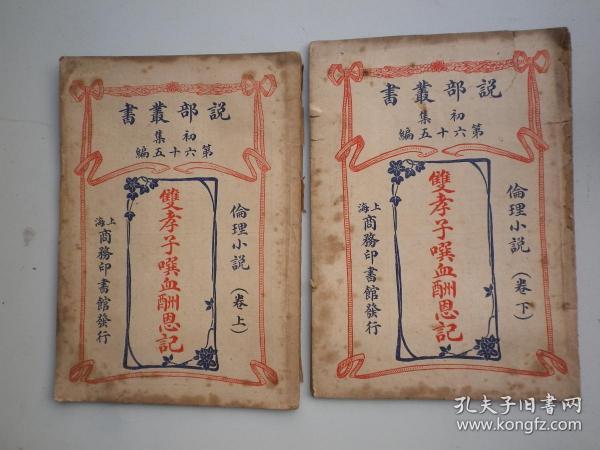 說部叢書
初集
第六十五編
倫理小說（卷上）
雙孝子噀血酬恩記
上海商務印書館發行
說部叢書
初集
第六十五編
倫理小說（卷下）
雙孝子噀血酬恩記
上海商務印書館發行
孔夫子旧书网
www.kongfz.com